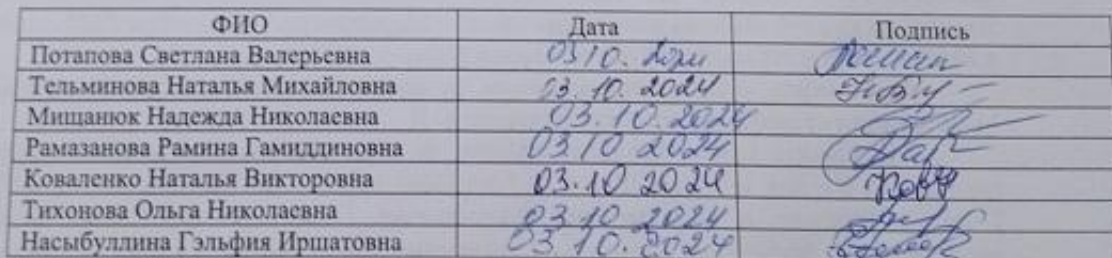 ФИО Дата Подпись
Потапова Светлана Валерьевна 03 10.
Тельминова Наталья Михайловна 03. 10. 2024
Мищанюк Надежда Николаевна 03.10.2024
Рамазанова Рамина Гамиддиновна 03 10 2024
Коваленко Наталья Викторовна 03.10 2024
Тихонова Ольга Николаевна 03 10 2024
Насыбуллина Гэльфия Иршатовна 03.10.2024